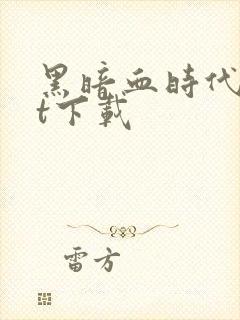 黑暗血時代
t下載
雷方